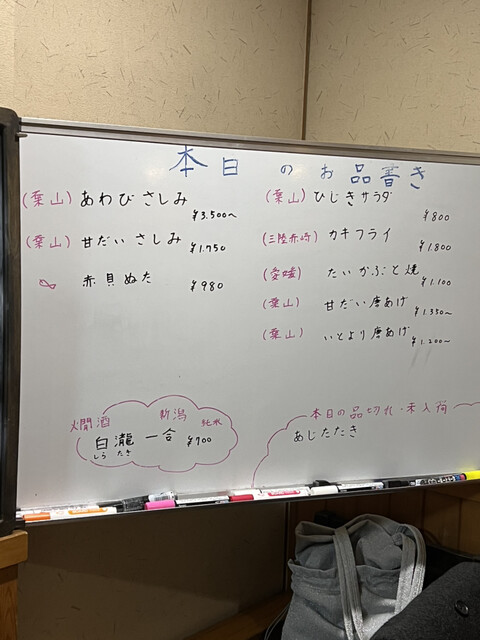 本日のお品書き
(葉山) あわびさしみ ¥3.500〜
(葉山) 甘だいさしみ ¥1.750
赤貝ぬた ¥980
(葉山) ひじきサラダ ¥800
(三陸赤崎) カキフライ ¥1.800
(愛媛) たいかぶと焼 ¥1.100
(葉山) 甘だい唐あげ ¥1.350〜
(葉山) いとより唐あげ ¥1.200〜
燗酒 新潟 純米
白瀧 一合 ¥700
しら たき
本日の品切れ・未入荷
あじたたき